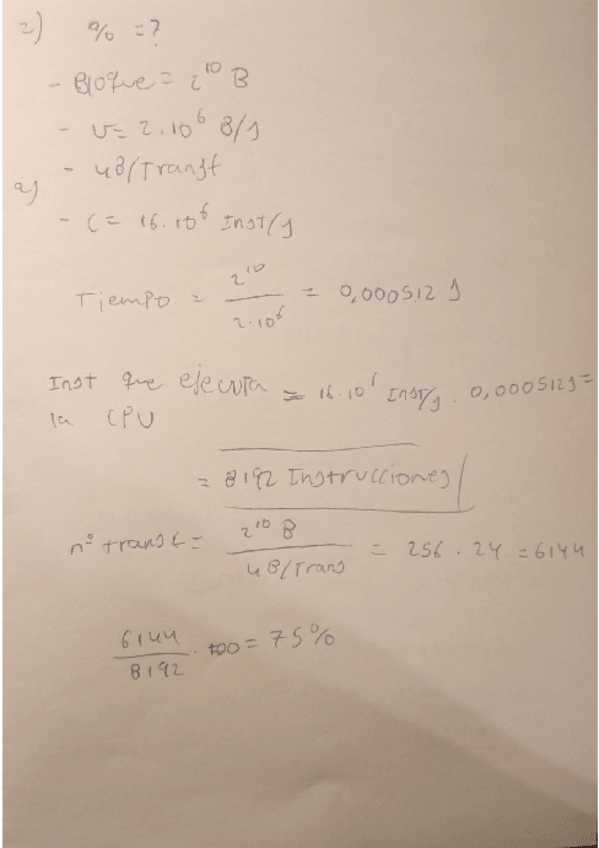 2) % = ?
- Bloque = 2^10 B
- v = 2.10^6 B/s
- 4B/Transf
a)
- C = 16.10^6 Inst/s
Tiempo = 2^10 / 2.10^6 = 0,000512 s
Inst que ejecuta la CPU = 16.10^6 Inst/s . 0,000512 s =
= 8192 Instrucciones
nº transf = 2^10 B / 4B/Trans = 256 . 24 = 6144
6144 / 8192 . 100 = 75%